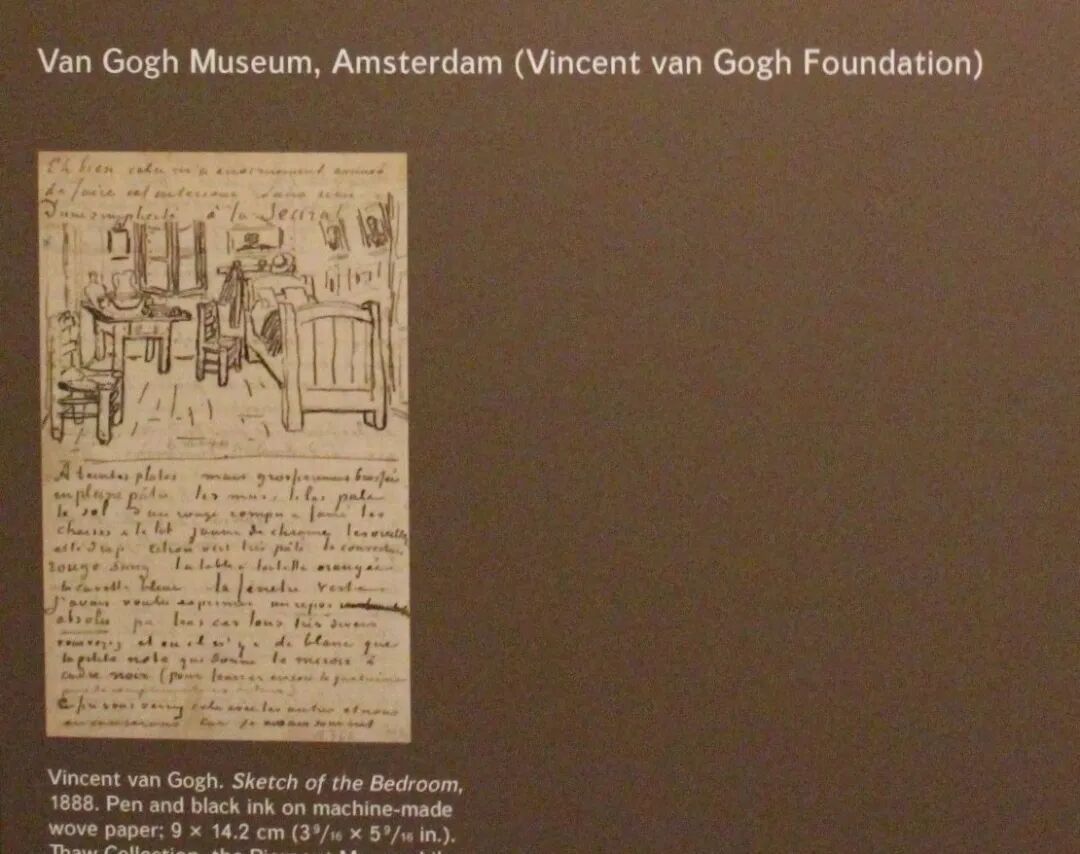 Van Gogh Museum, Amsterdam (Vincent van Gogh Foundation)
Eh bien cela m'a enormement amusé
de faire cet interieur Sans rien
D'une simplicité à la Seurat
À teintes plates mais grossierement brossées
en pleine pâte les murs lilas pale
le sol d'un rouge rompu & fané les
chaises & le lit jaune de chrome les oreillers
et le drap citron vert très pâle la couverture
rouge sang la table à toilette orangée
la cuvette bleue la fenêtre verte
J'avais voulu exprimer un repos
absolu par tous ces tons très divers
vous voyez et où il n'y a de blanc que
la petite note que donne le miroir à
cadre noir (pour fourrer encore la quatrième
Vincent van Gogh. Sketch of the Bedroom,
1888. Pen and black ink on machine-made
wove paper; 9 × 14.2 cm (3 9/16 × 5 9/16 in.).